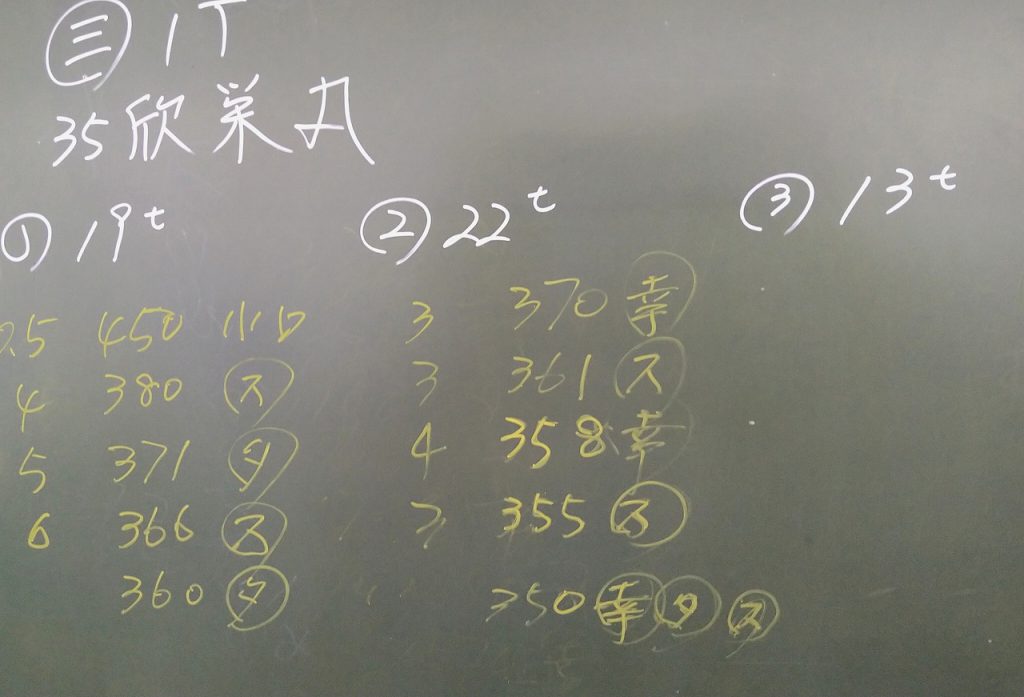 ㊂ 1T
35欣栄丸
① 19t ② 22t ③ 13t
0.5 450 小口
4 380 ス
5 371 タ
6 366 ス
360 タ
3 370 幸
3 361 ス
4 358 幸
355 ス
350 幸 タ ス